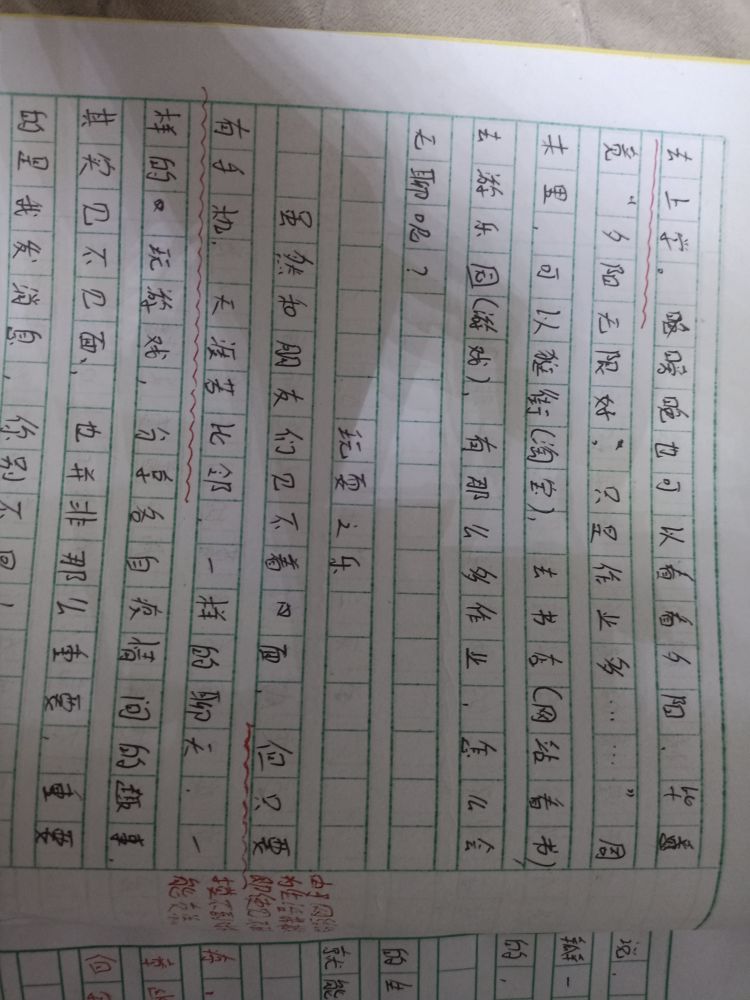 去上学。晚傍晚也可以看看夕阳，毕竟
竟“夕阳无限好，“只是作业多……”周
末里，可以逛街(淘宝)，去书店(网站看书)
去游乐园(游戏)，有那么多作业，怎么会
无聊呢？
玩耍之乐
虽然和朋友们见不着面，但只要
有手机，天涯若比邻。一样的聊天，一
样的玩游戏，分享各自疫情间的趣事。
其实见不见面，也并非那么重要，重要
的是我发消息，你别不回！
由于网络
即使见不
说，
辞一
的，
的生
就能
有，